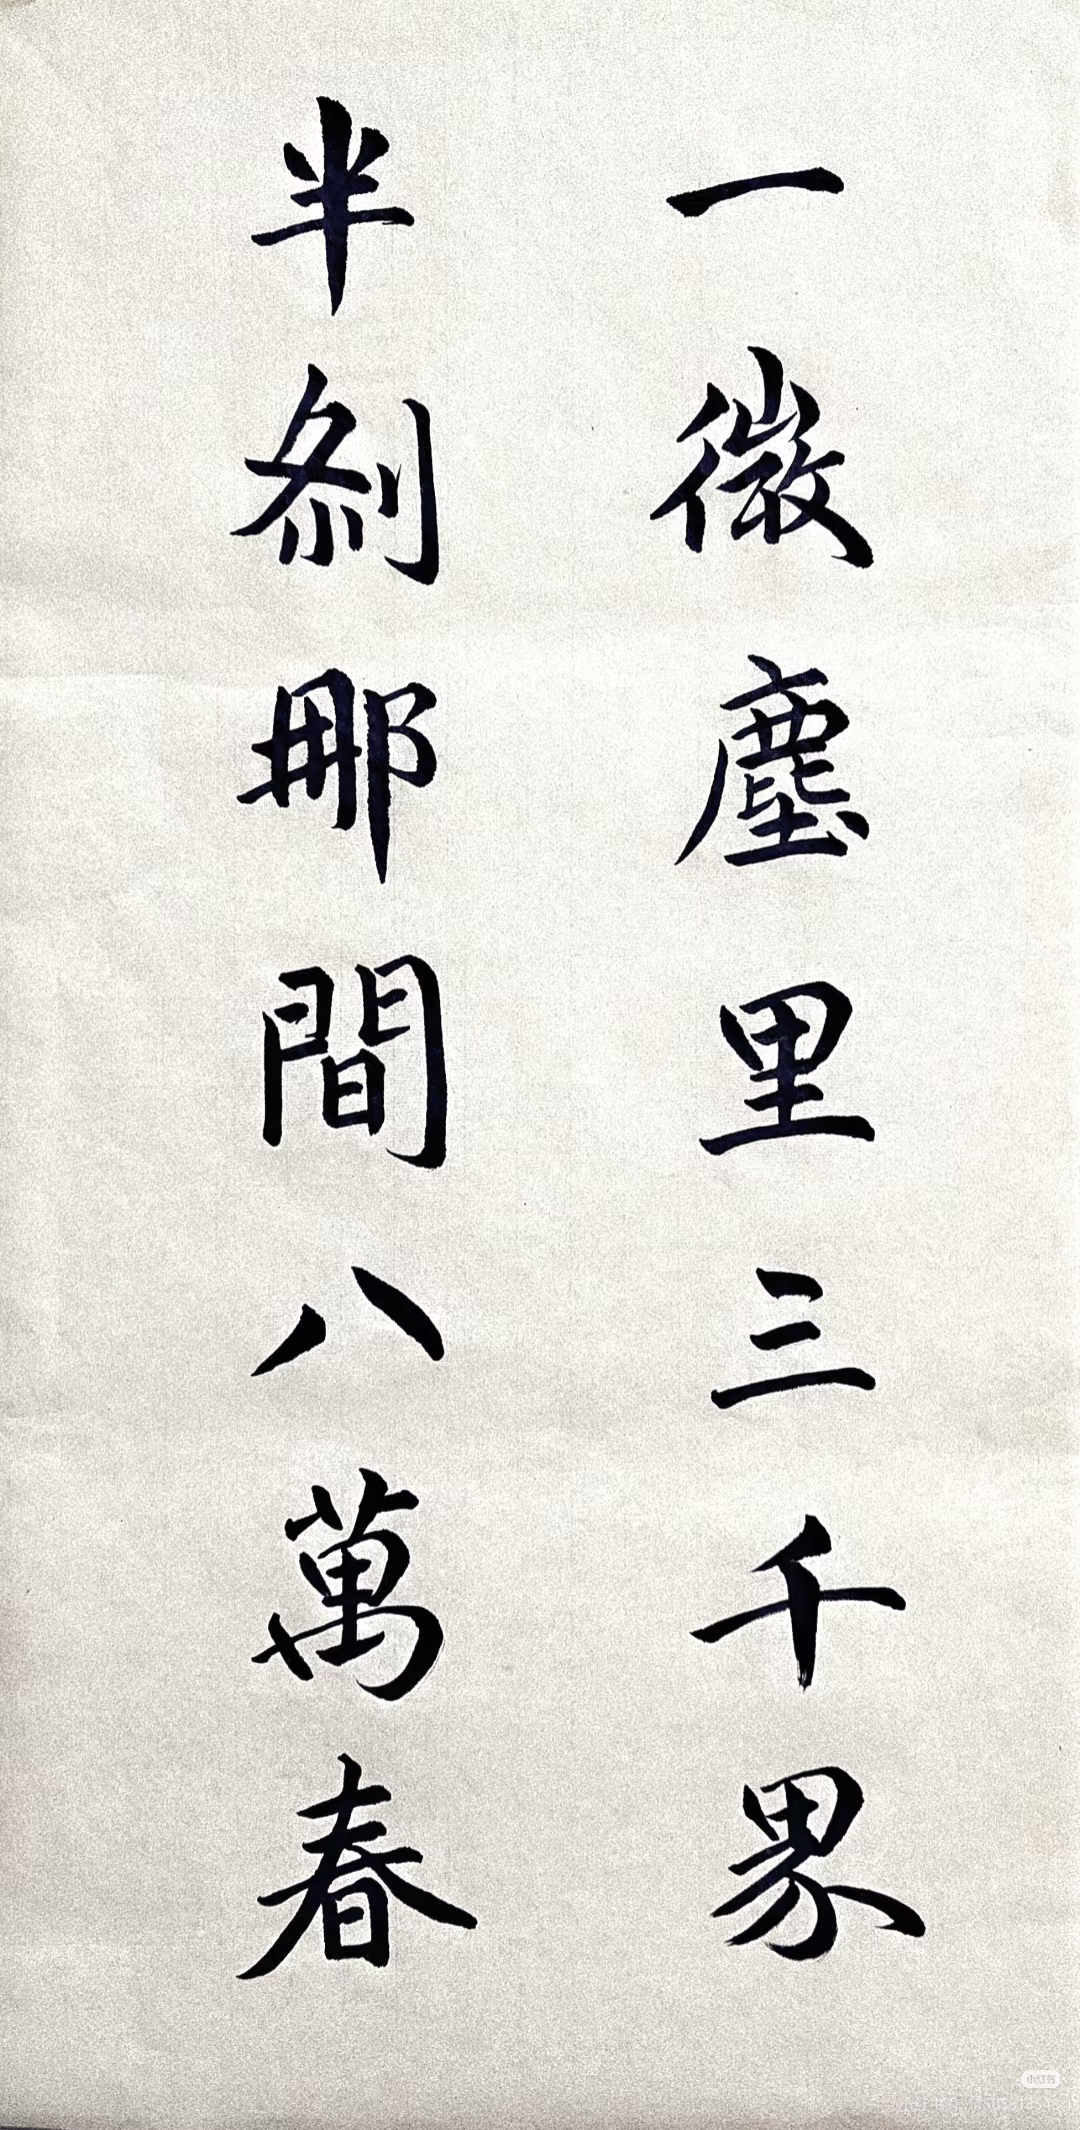 一微塵里三千界
半剎那間八萬春
小红书